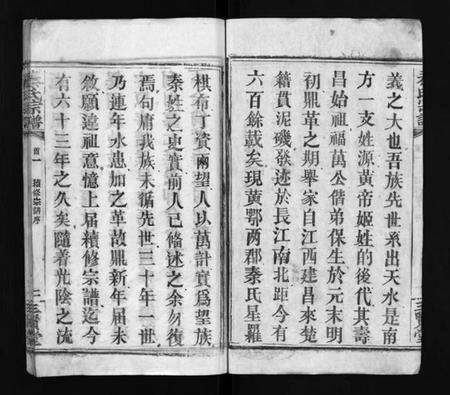 義之大也吾族先世系出天水是南
方一支姓源黃帝姬姓的後代其壽
昌始祖福萬公偕弟保生於元末明
初鼎革之期舉家自江西建昌來楚
籍貫泥磯發迹於長江南北距今有
六百餘載矣現黃鄂两郡秦氏星羅
棋布丁資兩望人以萬計實為望族
秦姓之史實前人已俻述之余勿復
焉句庸我族未循先世三十年一世
乃連年水患加之革故鼎新年屆未
敘願違祖意憶上届續修宗譜迄今
有六十三年之久矣隨着光陰之流
氏宗譜
首一
續修宗譜序
二